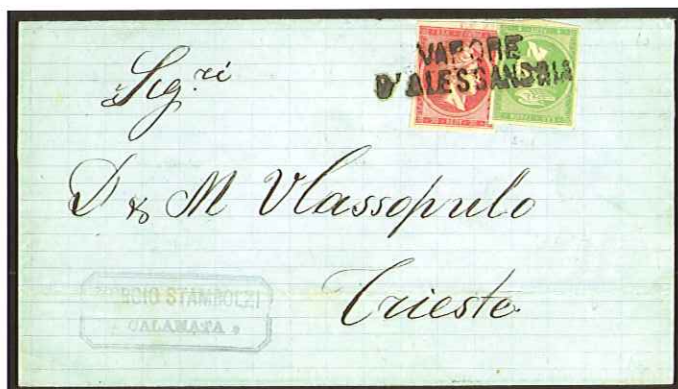 VAPORE
D'ALESSANDRIA
Sig.ri
D & M Vlassopulo
Trieste
STAMBOLZI
CALAMATA